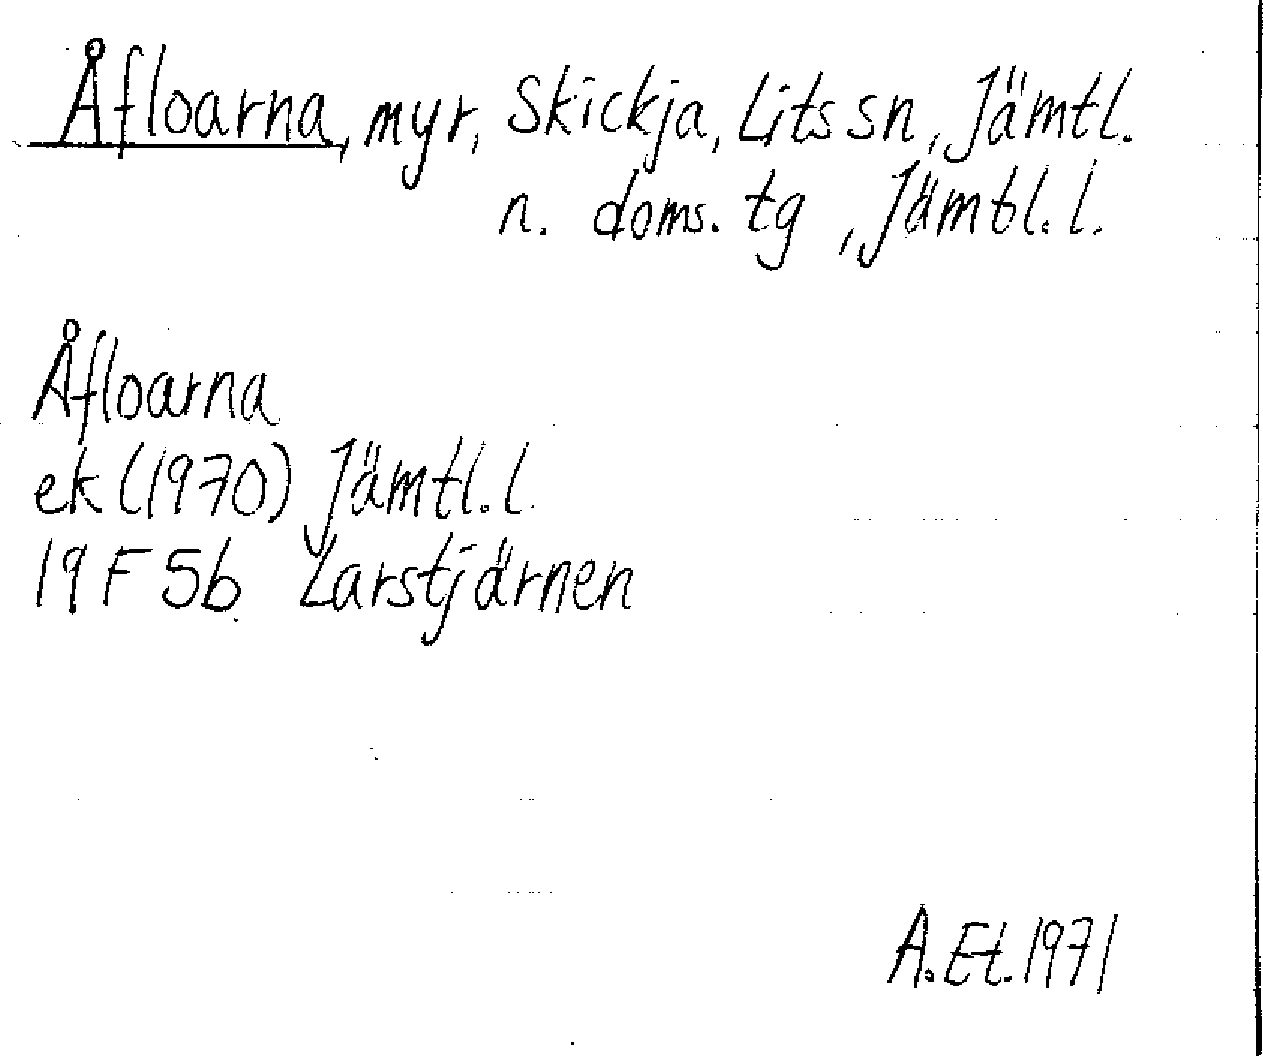 Åfloarna, myr, Skickja, Lits sn, Jämtl.
n. doms. tg, Jämtl. l.
Åfloarna
ek (1970) Jämtl. l.
19 F 5b Larstjärnen
A. Et. 1971